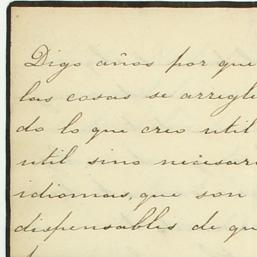 Digo años por que
las cosas se arregle
do lo que creo util
util sino necesari
idiomas, que son
dispensables de qu